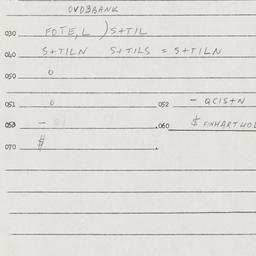 OVD3BANK
030 FOTE,L ) S+TIL
040 S+TILN S+TILS = S+TILN
050 0
051 0 052 - QCIS+N
053 - .060 $ FINHART HOL
070 $ .